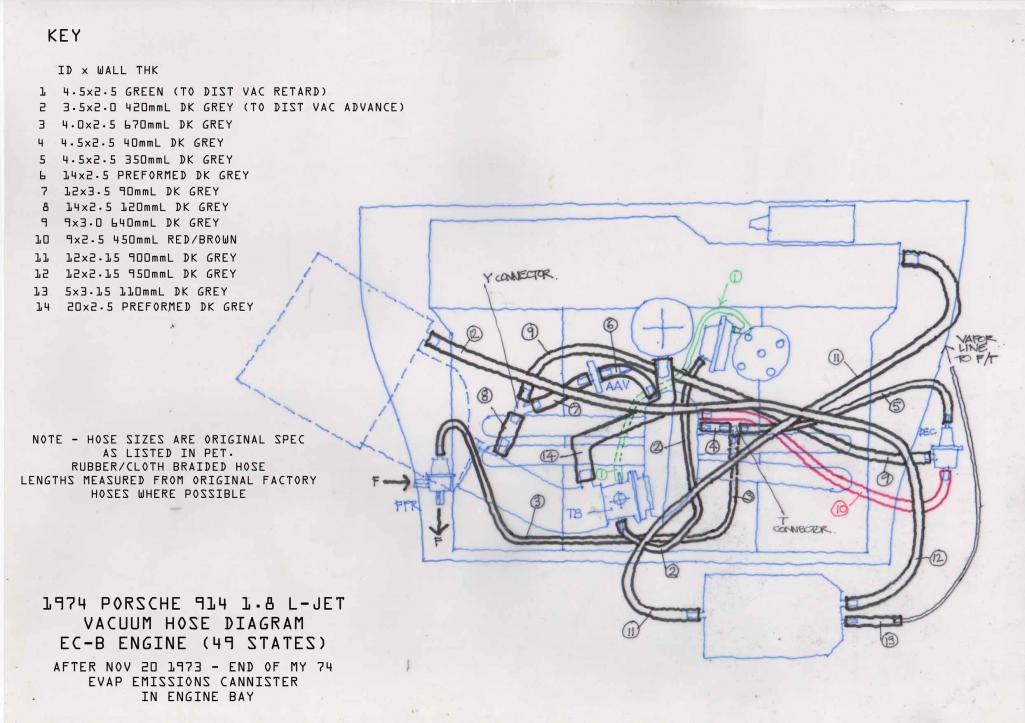 KEY
ID x WALL THK
1 4.5x2.5 GREEN (TO DIST VAC RETARD)
2 3.5x2.0 420mmL DK GREY (TO DIST VAC ADVANCE)
3 4.0x2.5 670mmL DK GREY
4 4.5x2.5 40mmL DK GREY
5 4.5x2.5 350mmL DK GREY
6 14x2.5 PREFORMED DK GREY
7 12x3.5 90mmL DK GREY
8 14x2.5 120mmL DK GREY
9 9x3.0 640mmL DK GREY
10 9x2.5 450mmL RED/BROWN
11 12x2.15 900mmL DK GREY
12 12x2.15 950mmL DK GREY
13 5x3.15 110mmL DK GREY
14 20x2.5 PREFORMED DK GREY
Y CONNECTOR.
1
12
9
6
AAV
11
VAPOR
LINE
TO F/T
8
7
5
2
4
DEC
14
1
9
NOTE - HOSE SIZES ARE ORIGINAL SPEC
AS LISTED IN PET.
RUBBER/CLOTH BRAIDED HOSE
LENGTHS MEASURED FROM ORIGINAL FACTORY
HOSES WHERE POSSIBLE
F
FPR
F
3
TB
3
10
T
CONNECTOR.
2
12
11
13
1974 PORSCHE 914 1.8 L-JET
VACUUM HOSE DIAGRAM
EC-B ENGINE (49 STATES)
AFTER NOV 20 1973 - END OF MY 74
EVAP EMISSIONS CANNISTER
IN ENGINE BAY